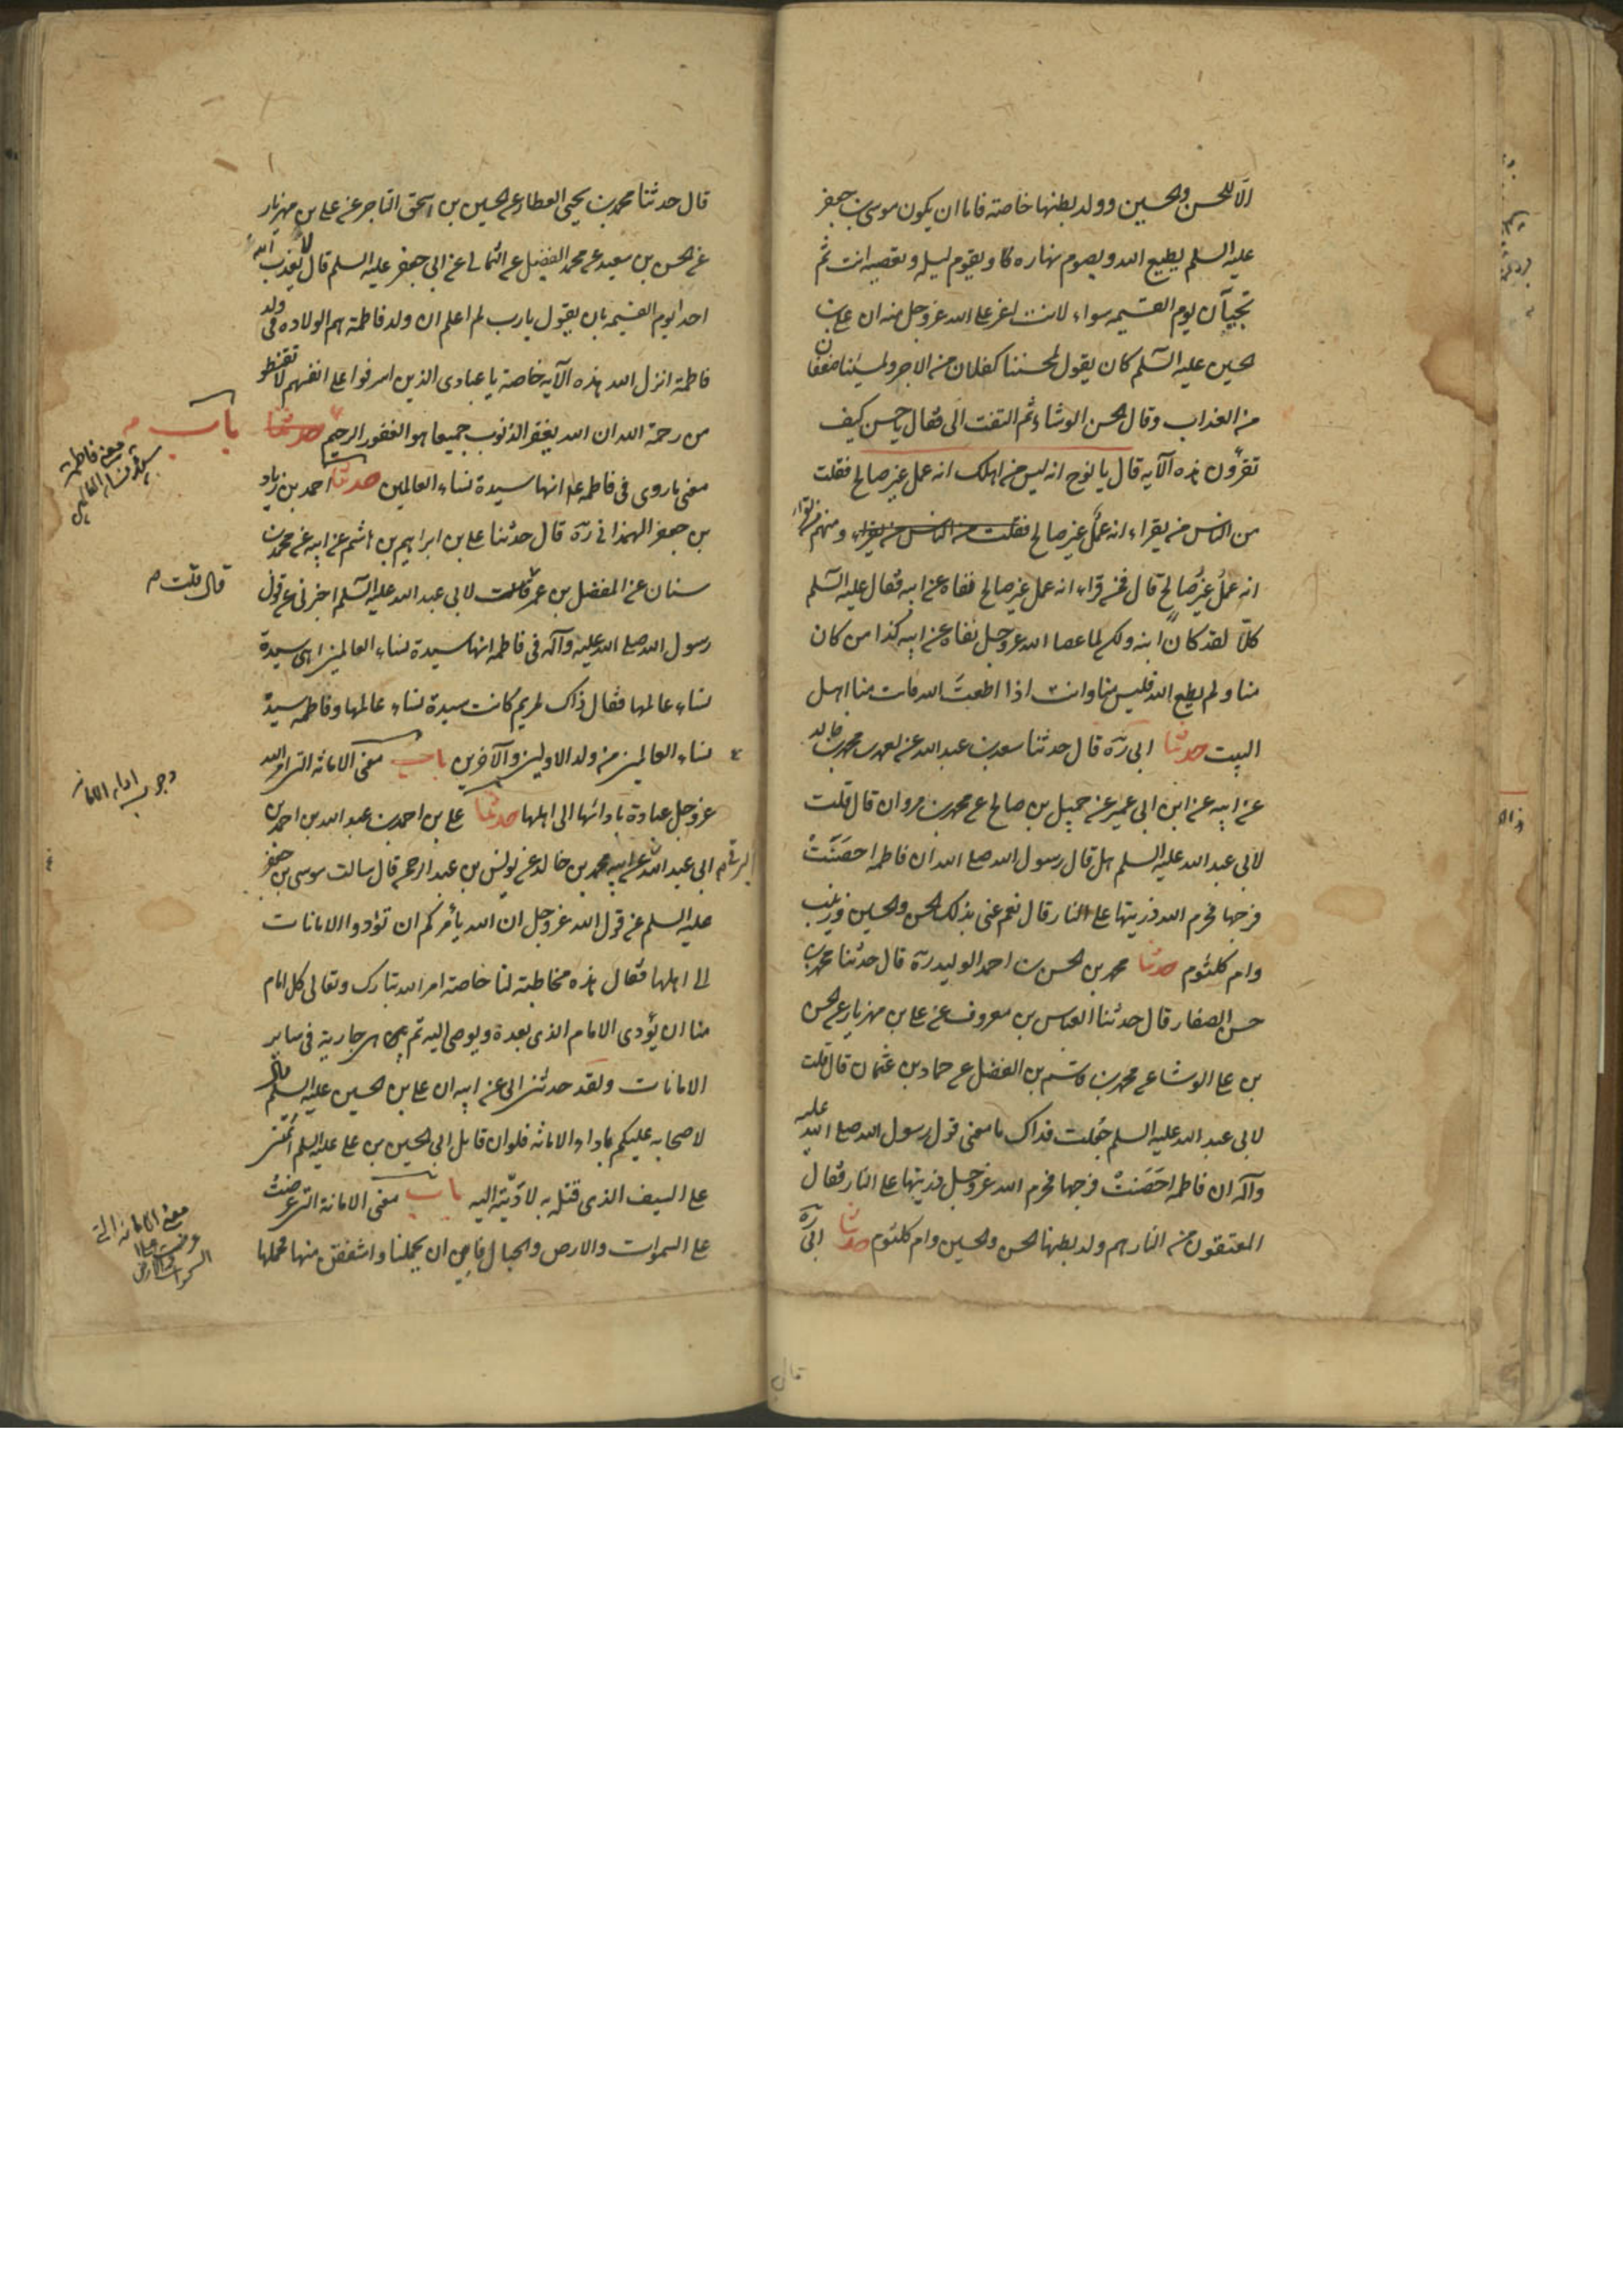 الّا للحسن والحسين وولد بطنها خاصة فاما ان يكون موسى بن جعفر
عليه السلم يطيع الله ويصوم نهاره ويقوم ليله وتعصيه انت ثم
تجيآن يوم القيمه سواء لانت اعز على الله عز وجل منه ان على بن
الحسين عليه السّلم كان يقول لمحسننا كفلان من الاجر ولمسيئنا ضعفان
من العذاب وقال الحسن الوشاء ثم التفت الىّ فقال يا حسن كيف
تقرؤن هذه الآيه قال يا نوح انه ليس من اهلك انه عمل غير صالح فقلت
من الناس من يقراء انه عملٌ غير صالح فقلت من الناس من يقراء ومنهم من يقراء
انه عملُ غيرِ صالح قال فمن قراء انه عمل غير صالح نفاه عن ابيه فقال عليه السّلم
كلّا لقد كان ابنه ولكن لما عصا الله عز وجل نفاه عن ابيه كذا من كان
منا ولم يطع الله فليس منا وانت اذا اطعتَ الله فانت منا اهل
البيت حدثنا ابى ره قال حدثنا سعد بن عبد الله عن محمد بن خالد
عن ابيه عن ابن ابى عمير عن جميل بن صالح عن محمد بن مروان قال قلت
لابى عبد الله عليه السلم هل قال رسول الله صلى الله ان فاطمه احصَنَتْ
فرجها فحرم الله ذريتها على النار قال نعم عنى بذلك الحسن والحسين وزينب
وام كلثوم حدثنا محمد بن الحسن بن احمد الوليد ره قال حدثنا محمد بن
حسن الصفار قال حدثنا العباس بن معروف عن على بن مهزيار عن الحسن
بن على الوشا عن محمد بن قاسم بن الفضل عن حماد بن عثمان قال قلت
لابى عبد الله عليه السلم جُعلت فداك ما معنى قول رسول الله صلى الله عليه
وآله ان فاطمه احَصَنتْ فرجها فحرم الله عز وجل ذريتها على النار فقال
المعتقون من النار هم ولد بطنها الحسن والحسين وام كلثوم حدثنا ابى ره
قال
قال حدثنا محمد بن يحيى العطار عن الحسين بن اسحق التاجر عن على بن مهزيار
عن الحسن بن سعيد عن محمد الفضيل عن الثمالى عن ابى جعفر عليه السلم قال لا يعذب الله
احدا يوم القيمه بان يقول يارب لم اعلم ان ولد فاطمة هم الولاه وفى ولد
فاطمة انزل الله هذه الآيه خاصة يا عبادى الذين اسرفوا على انفسهم لا تقنطوا
من رحمة الله ان الله يغفر الذنوب جميعا هو الغفور الرحيم حدثنا باب
معنى فاطمه سيدة نساء العالمين
معنى ما روى فى فاطمه ع انها سيدة نساء العالمين حدثنا احمد بن زياد
بن جعفر الهمدانى ره قال حدثنا على بن ابراهيم بن هاشم عن ابيه عن محمد بن
سنان عن المفضل بن عمر قال قلت لابى عبد الله عليه السّلم اخبرنى عن قول
قال قلت م
رسول الله صلى الله عليه وآله فى فاطمه انها سيدة نساء العالمين اهى سيدة
نساء عالمها فقال ذاك لمريم كانت سيدة نساء عالمها وفاطمه سيدة
نساء العالمين من ولد الاولين والآخرين باب معنى الامانه التى امر الله
وجوب اداء الامانه
عز وجل عباده بادائها الى اهلها حدثنا على بن احمد بن عبد الله بن احمد بن
ابى عبد الله عن ابيه محمد بن خالد عن يونس بن عبد الرحمن قال سالت موسى بن جعفر
عليه السلم عن قول الله عز وجل ان الله يأمركم ان تؤدوا الامانات
الى اهلها فقال هذه مخاطبة لنا خاصة امر الله تبارك وتعالى كل امام
منا ان يؤدى الامام الذى بعدة ويوصى اليه ثم هى جارية فى ساير
الامانات ولقد حدثنى ابى عن ابيه ان على بن الحسين عليه السلم قال
لاصحابه عليكم باداء الامانه فلو ان قاتل ابى الحسين بن على عليه السلم ائتمننى
على السيف الذى قتله به لادّيته اليه باب معنى الامانة التى عرضت
معنى الامانه التى عرضت على السموات والارض
على السموات والارض والجبال فابين ان يحملنا واشفقن منها فحملها